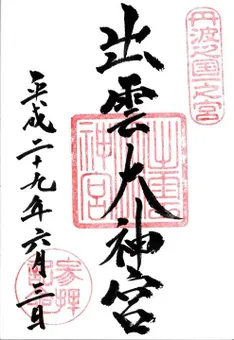 丹波之国一之宮
出雲大神宮
平成二十九年六月三日
参拝記念